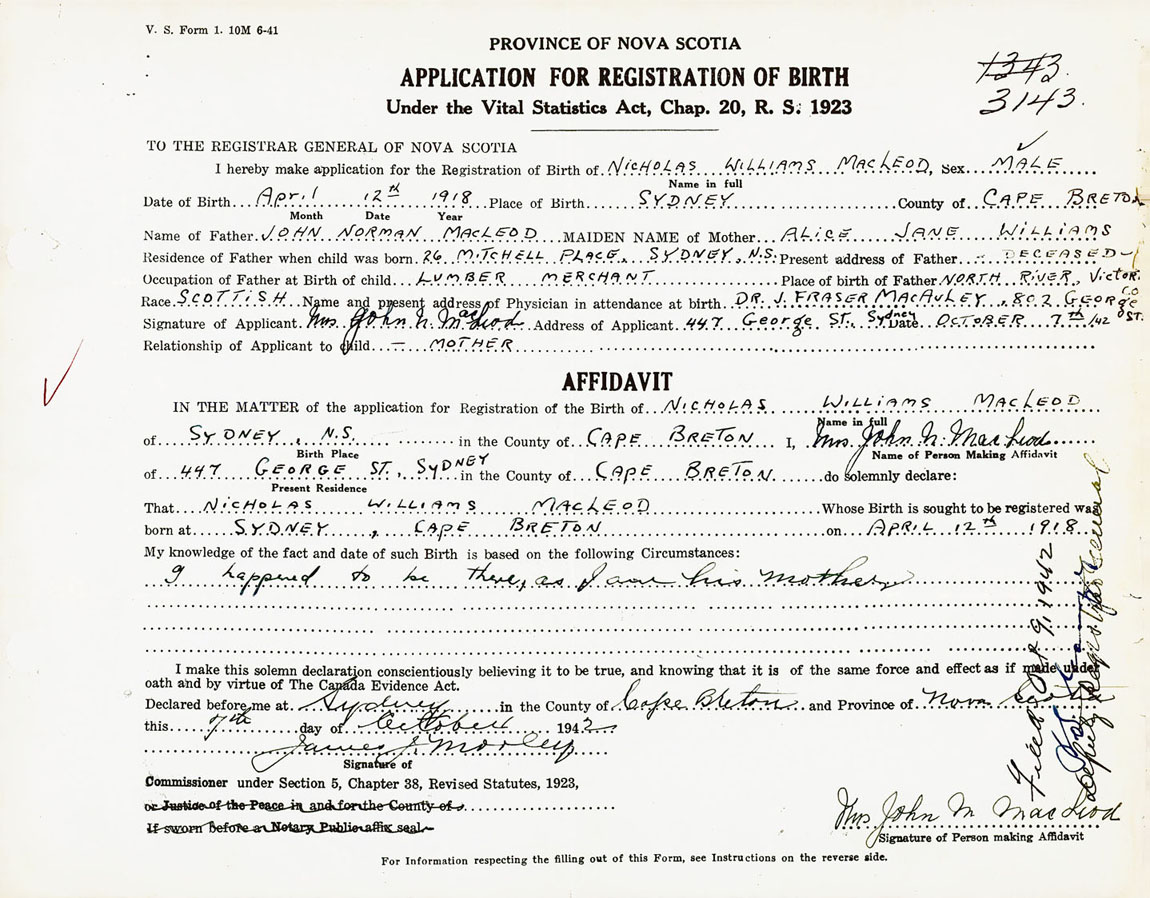 V. S. Form 1. 10M 6-41
PROVINCE OF NOVA SCOTIA
APPLICATION FOR REGISTRATION OF BIRTH
Under the Vital Statistics Act, Chap. 20, R. S. 1923
1343.
3143.
TO THE REGISTRAR GENERAL OF NOVA SCOTIA
I hereby make application for the Registration of Birth of NICHOLAS WILLIAMS MACLEOD, Sex MALE
Name in full
Date of Birth April 12th 1918 Place of Birth SYDNEY County of CAPE BRETON
Month Date Year
Name of Father JOHN NORMAN MACLEOD MAIDEN NAME of Mother ALICE JANE WILLIAMS
Residence of Father when child was born 26 MITCHELL PLACE, SYDNEY, N.S. Present address of Father - DECEASED -
Occupation of Father at Birth of child LUMBER MERCHANT Place of birth of Father NORTH RIVER, Victor. Co
Race SCOTTISH Name and present address of Physician in attendance at birth DR. J. FRASER MACAULEY, 802 GEORGE ST.
Signature of Applicant Mrs. John N. MacLeod Address of Applicant 447 George ST., Sydney Date OCTOBER 7th/42
Relationship of Applicant to child — MOTHER
AFFIDAVIT
IN THE MATTER of the application for Registration of the Birth of NICHOLAS WILLIAMS MACLEOD
Name in full
of SYDNEY, N.S. in the County of CAPE BRETON I, Mrs. John N. MacLeod
Birth Place Name of Person Making Affidavit
of 447 GEORGE ST., SYDNEY in the County of CAPE BRETON do solemnly declare:
Present Residence
That NICHOLAS WILLIAMS MACLEOD Whose Birth is sought to be registered was
born at SYDNEY, CAPE BRETON on APRIL 12th 1918
My knowledge of the fact and date of such Birth is based on the following Circumstances:
I happened to be there, as I am his mother
I make this solemn declaration conscientiously believing it to be true, and knowing that it is of the same force and effect as if made under
oath and by virtue of The Canada Evidence Act.
Declared before me at Sydney in the County of Cape Breton and Province of Nova
this 7th day of October 1942
James J. Morley
Signature of
Commissioner under Section 5, Chapter 38, Revised Statutes, 1923,
or Justice of the Peace in and for the County of
If sworn before a Notary Public affix seal
Mrs John N MacLeod
Signature of Person making Affidavit
For Information respecting the filling out of this Form, see Instructions on the reverse side.
Filed Oct 9, 1942
Deputy Registrar General